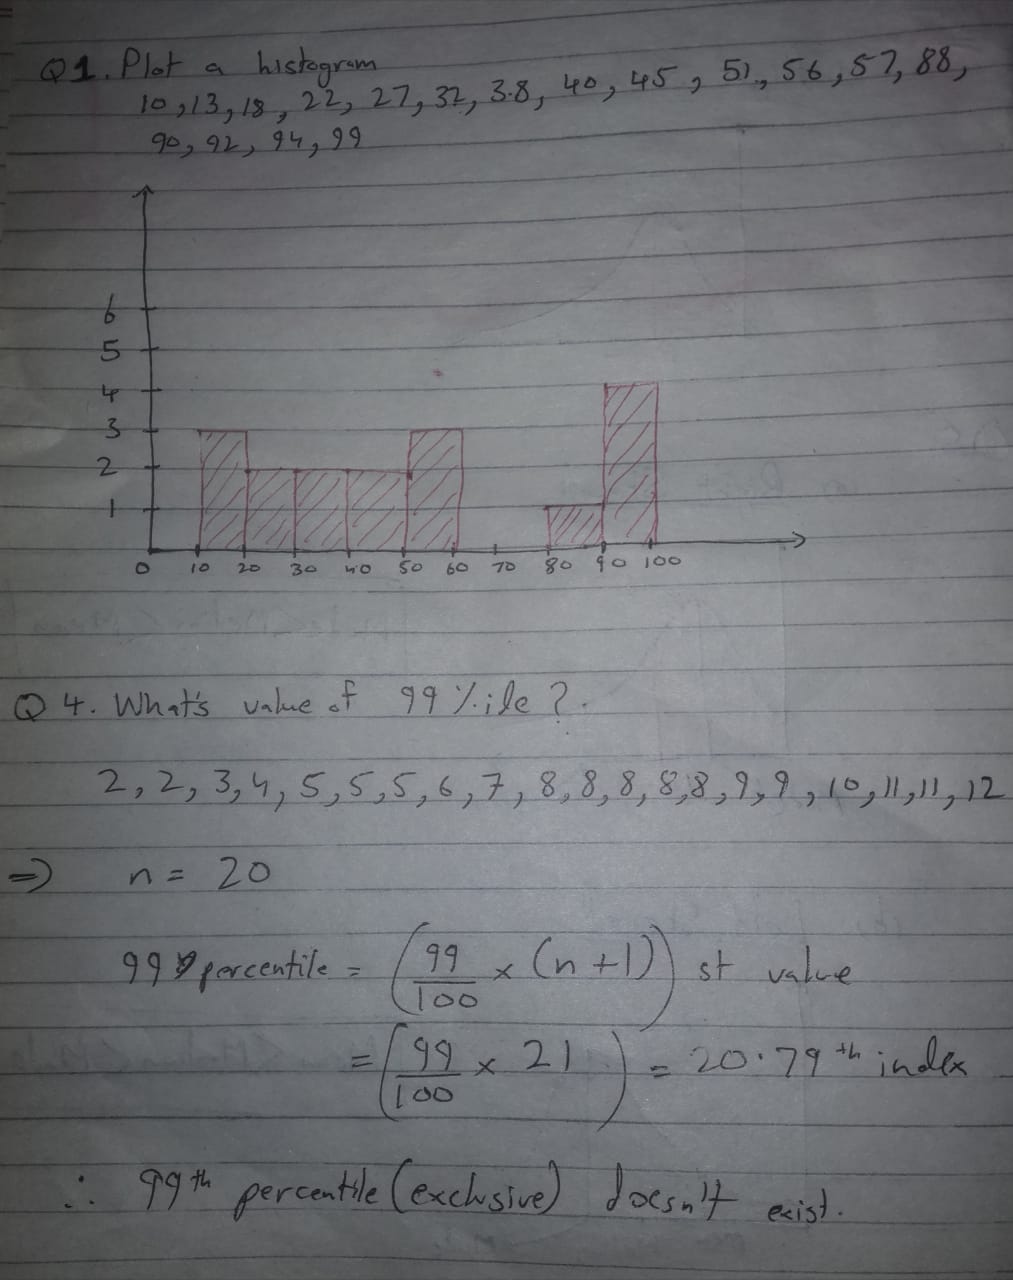 Q1. Plot a histogram
10, 13, 18, 22, 27, 32, 38, 40, 45, 51, 56, 57, 88,
90, 92, 94, 99
6
5
4
3
2
1
0 10 20 30 40 50 60 70 80 90 100
Q 4. What's value of 99 %ile ?.
2, 2, 3, 4, 5, 5, 5, 6, 7, 8, 8, 8, 8, 8, 9, 9, 10, 11, 11, 12
⇒ n = 20
99 percentile = (99/100 × (n+1)) st value
= (99/100 × 21) = 20.79 th index
∴ 99th percentile (exclusive) doesn't exist.